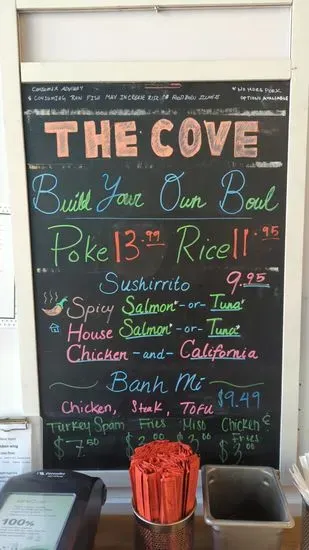 CONSUMER ADVISORY
* CONSUMING RAW FISH MAY INCREASE RISK OF FOODBORN ILLNESS
* NO HORS POKE
OPTIONS AVAILABLE
THE COVE
Build Your Own Bowl
Poke 13.99 Rice 11.95
Sushirrito 9.95
Spicy Salmon* -or- Tuna*
House Salmon* -or- Tuna*
Chicken -and- California
Banh Mi
Chicken, Steak, Tofu $9.49
Turkey Spam Fries Miso Chicken &
Fries
$7.50
100%